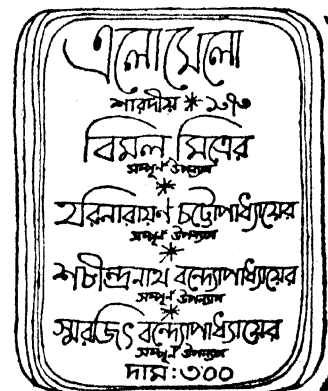 এলোমেলো
শারদীয় * ১৩৭৩
বিমল মিত্রের
সম্পূর্ণ উপন্যাস
*
হরিনারায়ণ চট্টোপাধ্যায়ের
সম্পূর্ণ উপন্যাস
*
শচীন্দ্রনাথ বন্দ্যোপাধ্যায়ের
সম্পূর্ণ উপন্যাস
*
স্মরজিৎ বন্দ্যোপাধ্যায়ের
সম্পূর্ণ উপন্যাস
দাম : ৩'০০